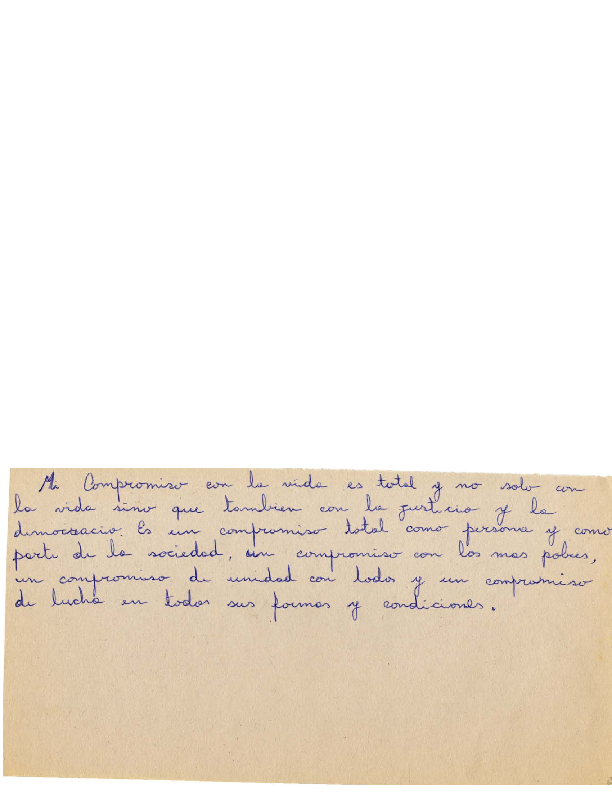 Mi Compromiso con la vida es total y no solo con
la vida sino que tambien con la justicia y la
democracia. Es un compromiso total como persona y como
parte de la sociedad, un compromiso con los mas pobres,
un compromiso de unidad con todos y un compromiso
de lucha en todas sus formas y condiciones.